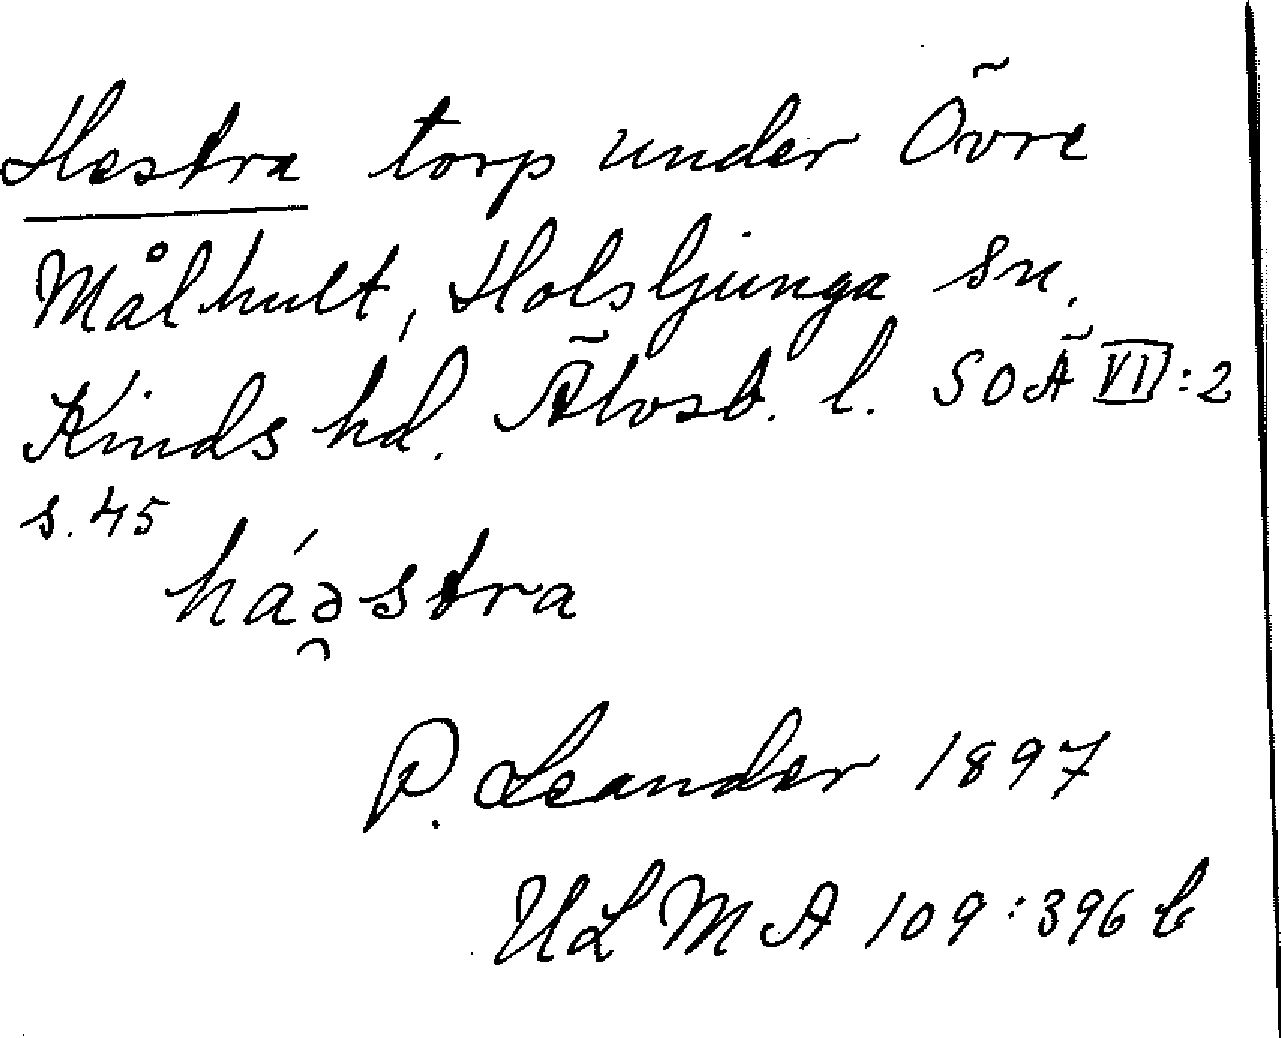 Hestra torp under Övre
Målhult, Holsljunga sn.
Kinds hd. Älvsb. l. SOÄ VI:2
s. 45
háə̯stra
P. Leander 1897
ULMA 109:396 b